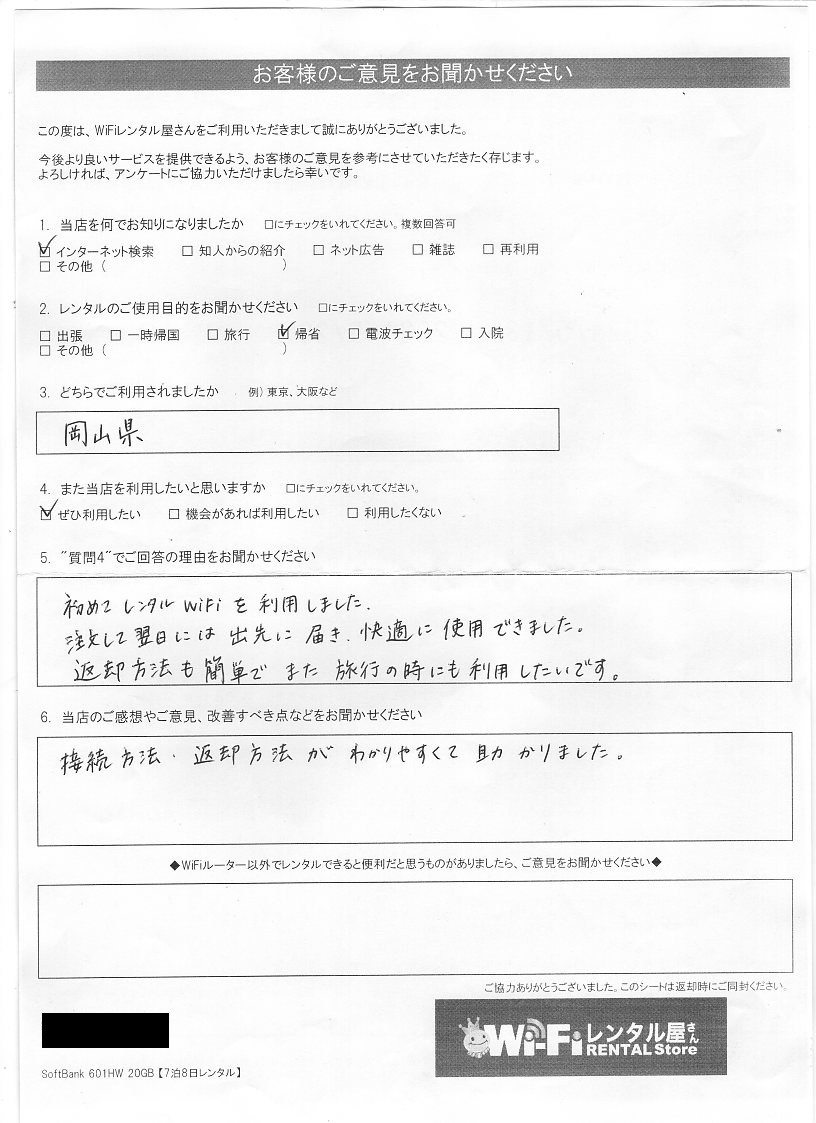 お客様のご意見をお聞かせください
この度は、WiFiレンタル屋さんをご利用いただきまして誠にありがとうございました。
今後より良いサービスを提供できるよう、お客様のご意見を参考にさせていただきたく存じます。
よろしければ、アンケートにご協力いただけましたら幸いです。
1. 当店を何でお知りになりましたか □にチェックをいれてください。複数回答可
☑ インターネット検索 □ 知人からの紹介 □ ネット広告 □ 雑誌 □ 再利用
□ その他 ( )
2. レンタルのご使用目的をお聞かせください □にチェックをいれてください。
□ 出張 □ 一時帰国 □ 旅行 ☑ 帰省 □ 電波チェック □ 入院
□ その他 ( )
3. どちらでご利用されましたか 例) 東京、大阪など
岡山県
4. また当店を利用したいと思いますか □にチェックをいれてください。
☑ ぜひ利用したい □ 機会があれば利用したい □ 利用したくない
5. "質問4"でご回答の理由をお聞かせください
初めてレンタルWiFiを利用しました.
注文して翌日には出先に届き、快適に使用できました。
返却方法も簡単でまた旅行の時にも利用したいです。
6. 当店のご感想やご意見、改善すべき点などをお聞かせください
接続方法・返却方法がわかりやすくて助かりました。
◆WiFiルーター以外でレンタルできると便利だと思うものがありましたら、ご意見をお聞かせください◆
ご協力ありがとうございました。このシートは返却時にご同封ください。
Wi-Fiレンタル屋さん
RENTAL Store
SoftBank 601HW 20GB【7泊8日レンタル】